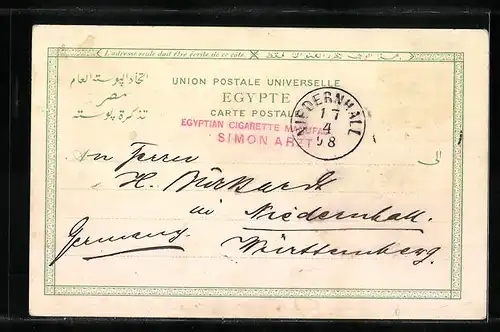 L'adresse seule doit être écrite de ce côté.
اتحاد البوستة العام
مصر
تذكرة بوستة
UNION POSTALE UNIVERSELLE
EGYPTE
CARTE POSTALE
EGYPTIAN CIGARETTE
SIMON ARZT
NIEDERNHALL
17
4
98
الى
An Herrn
H. Burkardt
in Niedernhall.
Germany. Württemberg.